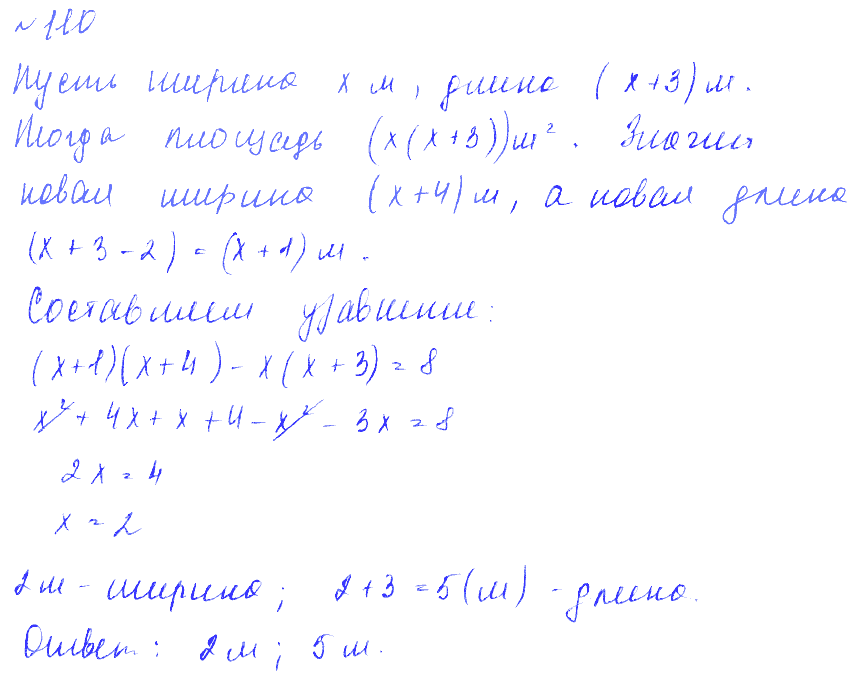 №110
Пусть ширина x м, длина (x+3) м.
Тогда площадь (x(x+3)) м². Значит
новая ширина (x+4) м, а новая длина
(x+3-2) = (x+1) м.
Составляем уравнение:
(x+1)(x+4) - x(x+3) = 8
x² + 4x + x + 4 - x² - 3x = 8
2x = 4
x = 2
2м - ширина; 2+3=5(м) - длина.
Ответ: 2м; 5м.